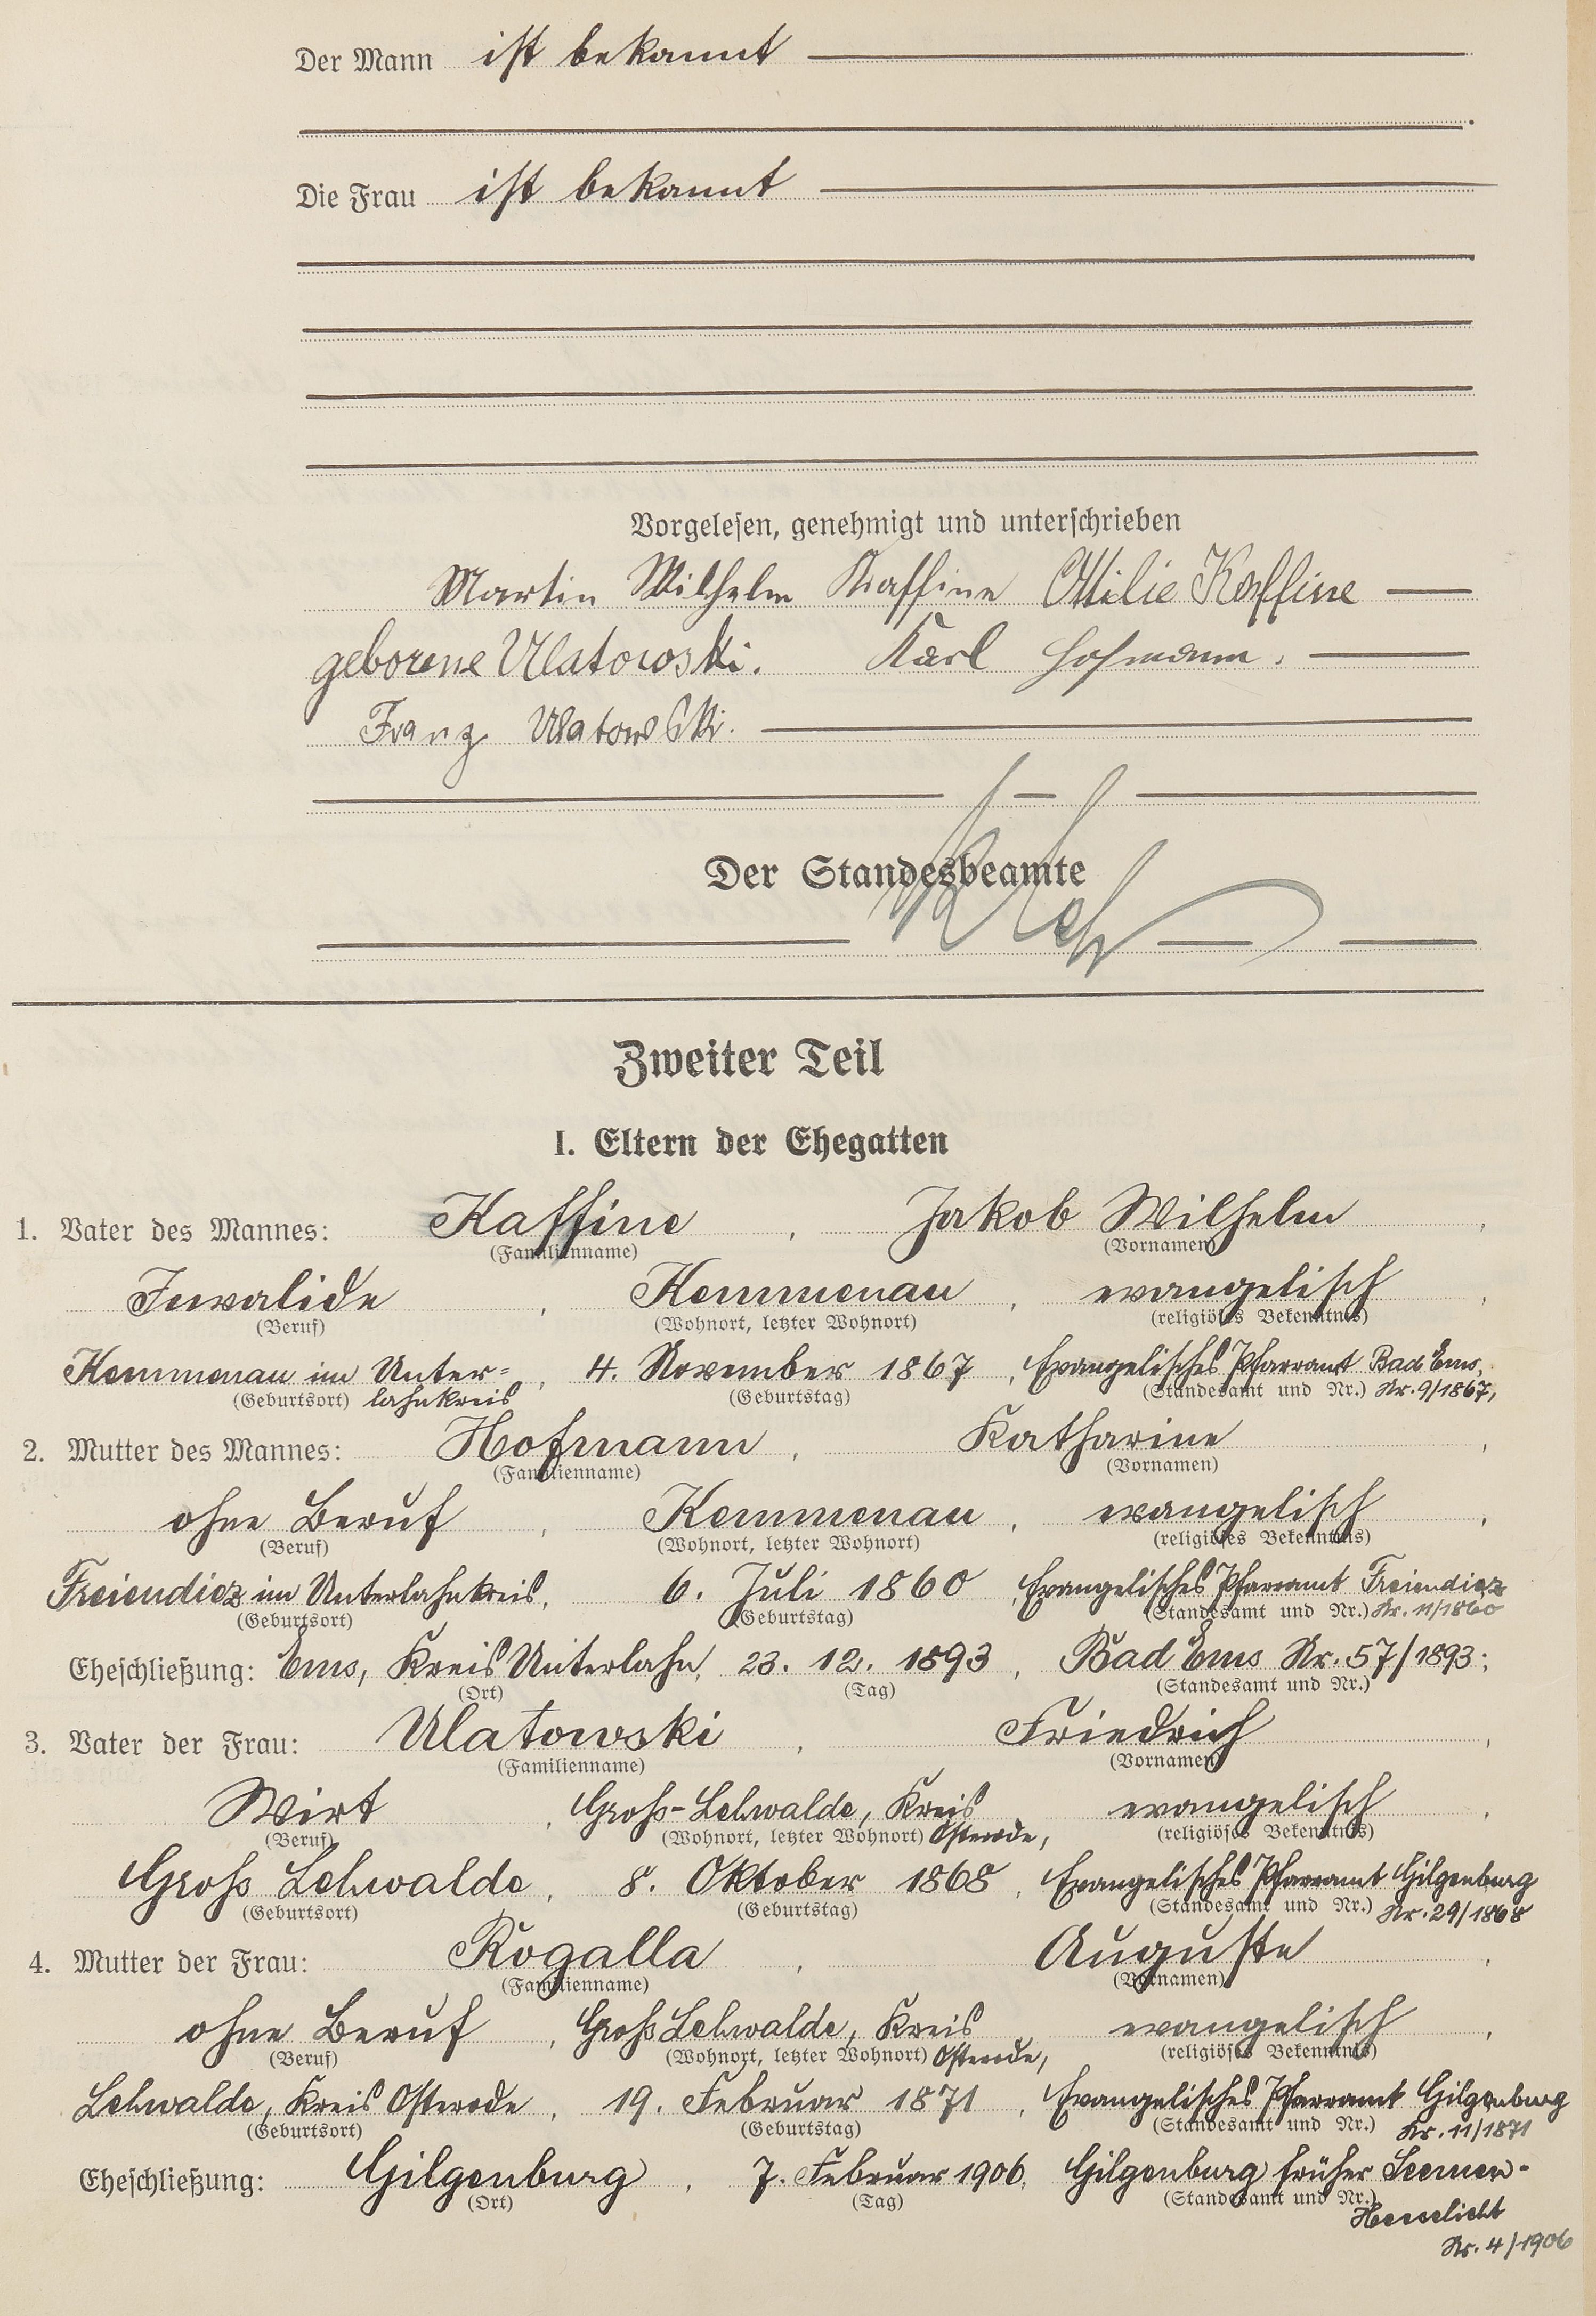 Der Mann ist bekannt
Die Frau ist bekannt
Vorgelesen, genehmigt und unterschrieben
Martin Wilhelm Kaffine Ottilie Kaffine
geborene Ulatowski. Karl Hofmann.
Franz Ulatowski.
Der Standesbeamte
Zweiter Teil
I. Eltern der Ehegatten
1. Vater des Mannes: Kaffine, Jakob Wilhelm,
(Familienname) (Vornamen)
Invalide, Kemmenau, evangelisch,
(Beruf) (Wohnort, letzter Wohnort) (religiöses Bekenntnis)
Kemmenau im Unter-, 4. November 1867, Evangelisches Pfarramt Bad Ems,
(Geburtsort) lahnkreis (Geburtstag) (Standesamt und Nr.) Nr. 9/1867,
2. Mutter des Mannes: Hofmann, Katharine,
(Familienname) (Vornamen)
ohne Beruf, Kemmenau, evangelisch,
(Beruf) (Wohnort, letzter Wohnort) (religiöses Bekenntnis)
Freiendiez im Unterlahnkreis, 6. Juli 1860, Evangelisches Pfarramt Freiendiez
(Geburtsort) (Geburtstag) (Standesamt und Nr.) Nr. 11/1860
Eheschließung: Ems, Kreis Unterlahn, 23. 12. 1893, Bad Ems Nr. 57/1893;
(Ort) (Tag) (Standesamt und Nr.)
3. Vater der Frau: Ulatowski, Friedrich,
(Familienname) (Vornamen)
Wirt, Groß-Lehwalde, Kreis, evangelisch,
(Beruf) (Wohnort, letzter Wohnort) Osterode, (religiöses Bekenntnis)
Groß Lehwalde, 8. Oktober 1868, Evangelisches Pfarramt Gilgenburg
(Geburtsort) (Geburtstag) (Standesamt und Nr.) Nr. 29/1868
4. Mutter der Frau: Rogalla, Auguste,
(Familienname) (Vornamen)
ohne Beruf, Groß Lehwalde, Kreis evangelisch,
(Beruf) (Wohnort, letzter Wohnort) Osterode, (religiöses Bekenntnis)
Lehwalde, Kreis Osterode, 19. Februar 1871, Evangelisches Pfarramt Gilgenburg
(Geburtsort) (Geburtstag) (Standesamt und Nr.) Nr. 11/1871
Eheschließung: Gilgenburg, 7. Februar 1906, Gilgenburg früher Seemen-
(Ort) (Tag) (Standesamt und Nr.)
Heeselicht
Nr. 4/1906